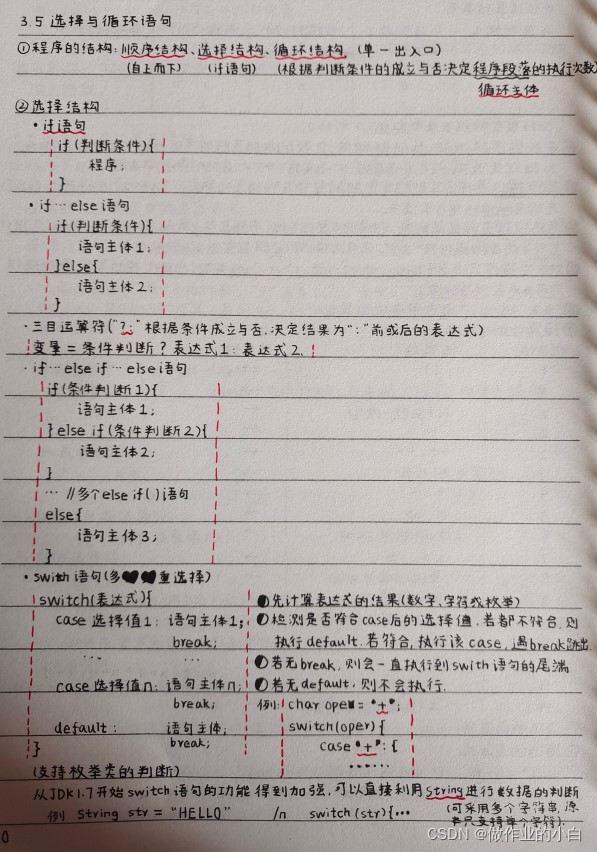 3.5 选择与循环语句
①程序的结构: 顺序结构、选择结构、循环结构. (单一出入口)
(自上而下) (if语句) (根据判断条件的成立与否决定程序段落的执行次数)
循环主体
②选择结构
·if语句
if (判断条件){
程序;
}
·if…else语句
if(判断条件){
语句主体1;
}else{
语句主体2;
}
·三目运算符("?:"根据条件成立与否.决定结果为":"前或后的表达式)
变量=条件判断?表达式1:表达式2.
·if…else if…else语句
if(条件判断1){
语句主体1;
}else if(条件判断2){
语句主体2;
}
… //多个else if( )语句
else{
语句主体3;
}
·swith语句(多重选择)
switch(表达式){
case 选择值1: 语句主体1;
break;
… …
case 选择值n: 语句主体n;
break;
default: 语句主体;
break;
}
先计算表达式的结果(数字、字符或枚举)
检测是否符合case后的选择值.若都不符合.则
执行default.若符合,执行该case,遇break跳出.
若无break,则会一直执行到swith语句的尾端
若无default,则不会执行.
例: char oper="+";
switch(oper){
case"+":{
……
(支持枚举类的判断)
从JDK1.7开始switch语句的功能得到加强,可以直接利用String进行数据的判断
例 String str = "HELLO" /n switch (str){…
(可采用多个字符串,原
来只支持单个字符).
CSDN @做作业的小白